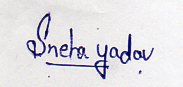 Sneha yadav